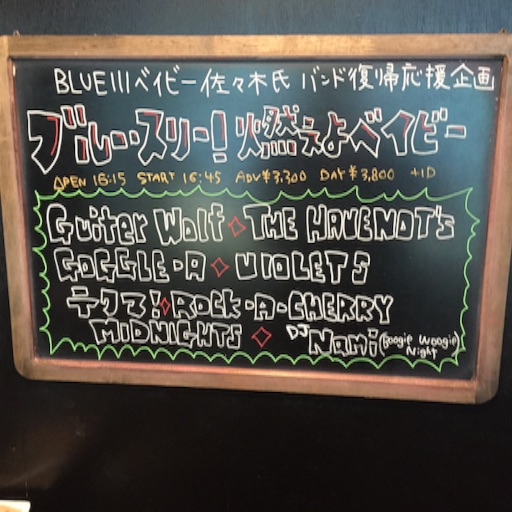 BLUEIIIベイビー佐々木氏 バンド復帰応援企画
ブルー・スリー!燃えよベイビー
OPEN 16:15 START 16:45 ADV¥3,300 DAY¥3,800 +1D
Guiter Wolf ◇ THE HAVENOT's
GOGGLE-A ◇ VIOLETS
テクマ!◇ROCK-A-CHERRY
MIDNIGHTS ◇ DJ Nami(Boogie Woogie Night)